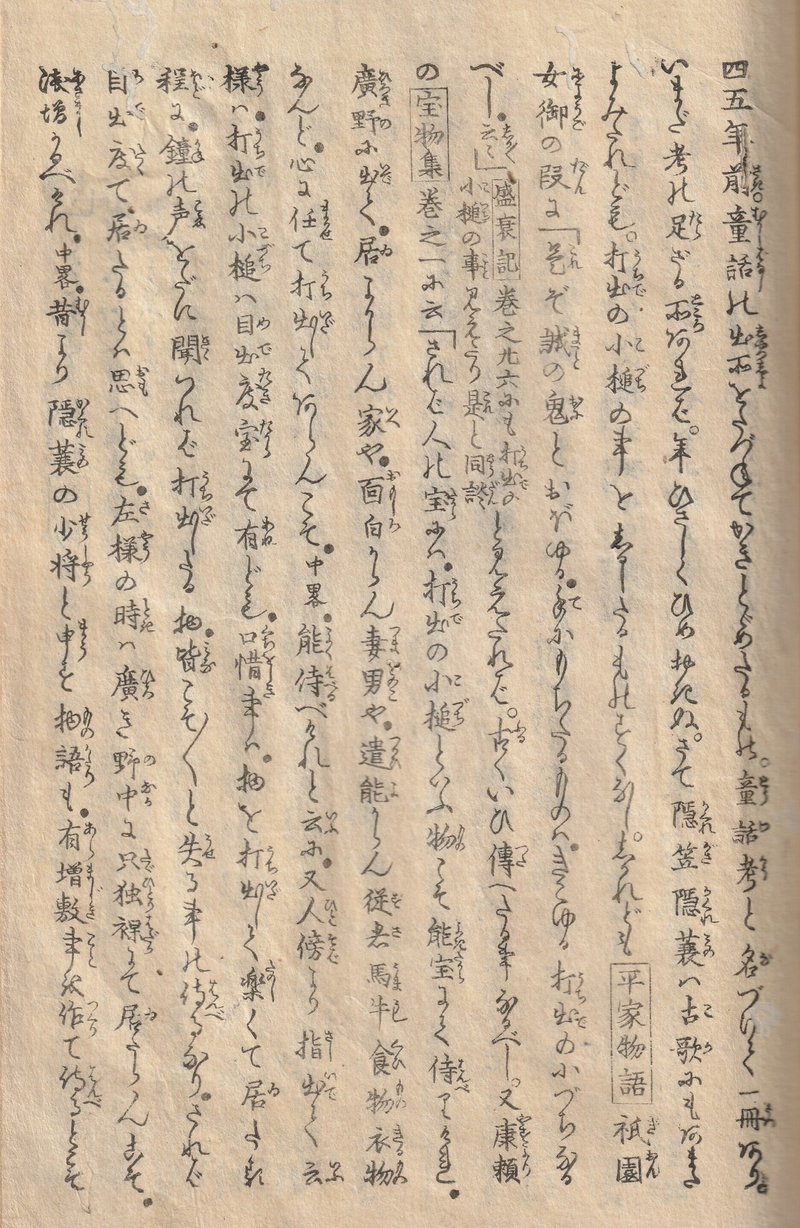 四五年前童話の出所をたづねてかきとゞめたるもの。童話考と名づけて一冊あり。
いまだ考の足ざる所あれば。年ひさしくひめおきぬ。さて隠笠隠蓑は古歌にもあまた
よみたれども。打出の小槌の事をしるしたるものすくなし。しかれども平家物語祇園
女御の段に「是ぞ誠の鬼とおぼゆる。手にもちたるものは。きこゆる打出の小づちなる
べし。云々」盛衰記巻之廿六にも打出の小槌の事見えたり是と同談と見えたれば。古くいひ傳へたる事なるべし。又康頼
の宝物集巻之一に云「されば人の宝には。打出の小槌といふ物こそ能宝にて侍りけれ。
廣野に出て。居よからん家や。面白からん妻男や。遣能からん従者馬牛食物衣物
なんど。心に任て打出してあらんこそ。中畧。能侍べけれと云に。又人傍より指出て云
様は打出の小槌は目出度宝にて有ども。口惜事は。物を打出して楽くて居たる
程に。鐘の声をだに聞つれば打出したる物皆こそ〱と失る事の侍るなり。されば
目出度て居たるとは思へども。左様の時は廣き野中に只独裸にて居たらんこそ。
浅増かるべけれ。中畧。昔より隠蓑の少将と申す物語も。有増敷事を作て侍るとこそ